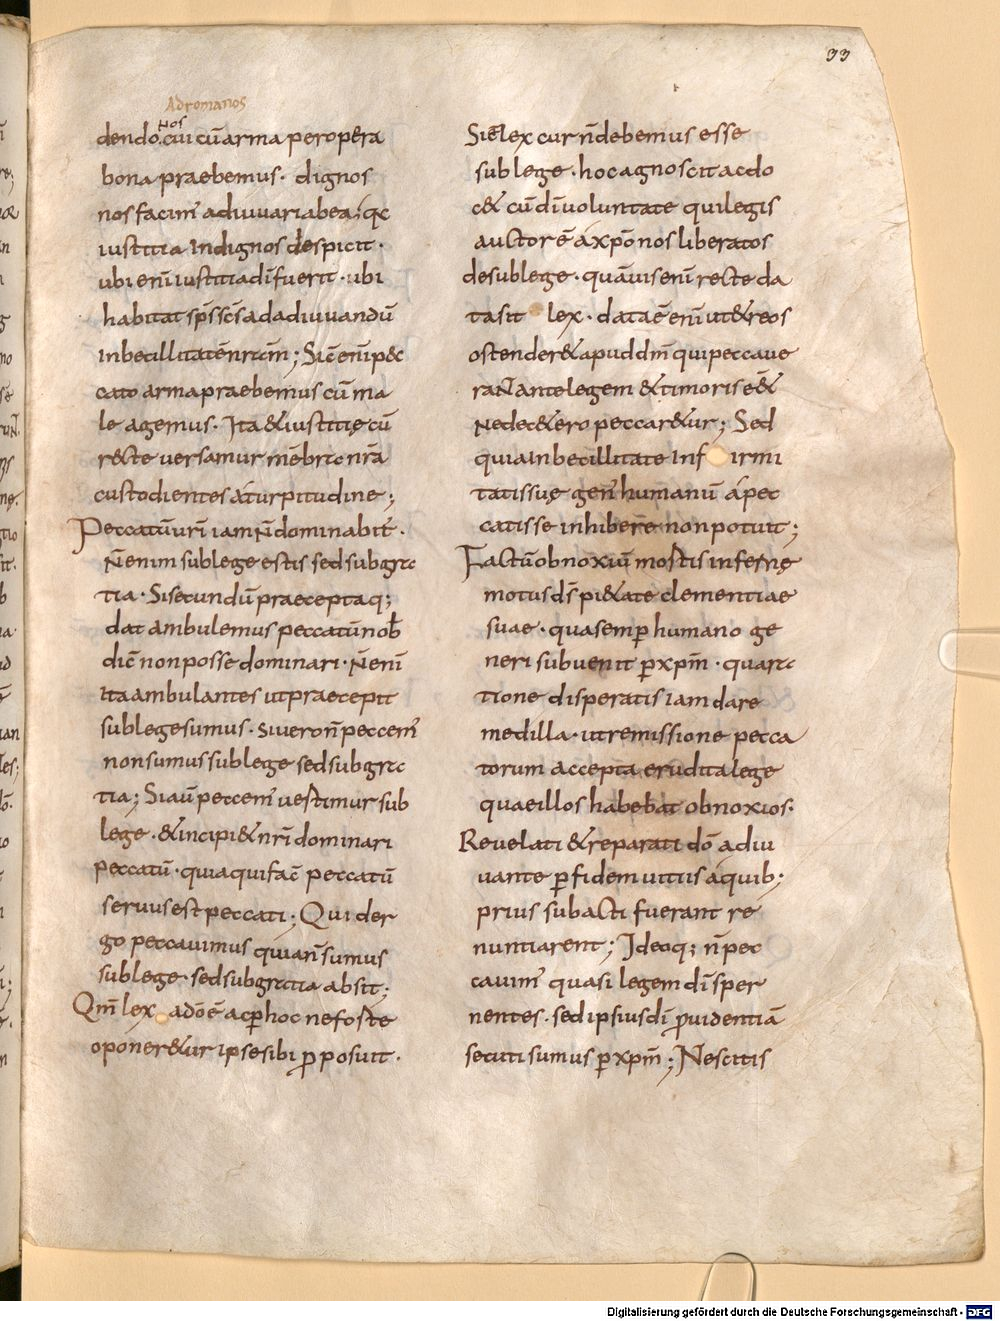 33
Adromanos
nos
dendo. cui cū arma per opera
bona praebemus. dignos
nos facim̄ adiuuari ab ea; qc
iustitia indignos despicit.
ubi enī iustitia dī fuerit. ubi
habitat sp̄s sc̄s ad adiuuandū
inbecillitatē nr̄am; Sic enī pec
cato arma praebemus cū ma
le agemus. Ita & iustitię cū
recte uersamur mēbra nr̄a
custodientes a turpitudine;
Peccatū urī iam n̄ dominabit̄.
N̄ enim sub lege estis sed sub gra
tia. Si secundū praecepta q;
dat ambulemus peccatū nob̄
dic̄ non posse dominari. N̄ enī
ita ambulantes ut praecepit
sub lege sumus. si uero n̄ peccem̄
non sumus sub lege sed sub gra
tia; Si aū peccem̄ uestimur sub
lege. & incipi& nr̄i dominari
peccatū. quia qui fac̄ peccatū
seruus est peccati; Quid er
go peccauimus quia n̄ sumus
sub lege. sed sub gratia absit;
Qm̄ lex a dō ē ac p hoc ne foste
oponer&ur ipse sibi pposuit.
Si ē lex cur n̄ debemus esse
sub lege. hoc agnoscit ac do
c& cū dī uoluntate qui legis
auctor ē a xp̄o nos liberatos
de sub lege. quāuis enī recte da
ta sit lex. data ē enī ut & reos
ostender& apud dm̄ qui peccaue
raN ante legem & timori se&
Nedec&ero peccar&ur; Sed
quia inbecillitate inf irmi
tatis suę gen̄ humanū a pec
catis se inhibere non potuit;
Factū obnoxiū mostis infernę
motus ds̄ pi&ate clementiae
suae. qua semp humano ge
neri subuenit p xpm̄. qua ra
tione disperatis iam dare
medilla. ut remissione pecca
torum accepta erudita lege
quae illos habebat obnoxios.
Reuelati & reparati dō adiu
uante p fidem uitiis a quib;
prius subacti fuerant re
nuntiarent; Ideoq; n̄ pec
cauim̄ quasi legem dī sper
nentes. sed ipsius dī puidentiā
secuti sumus p xpm̄; Nescitis
Digitalisierung gefördert durch die Deutsche Forschungsgemeinschaft - DFG